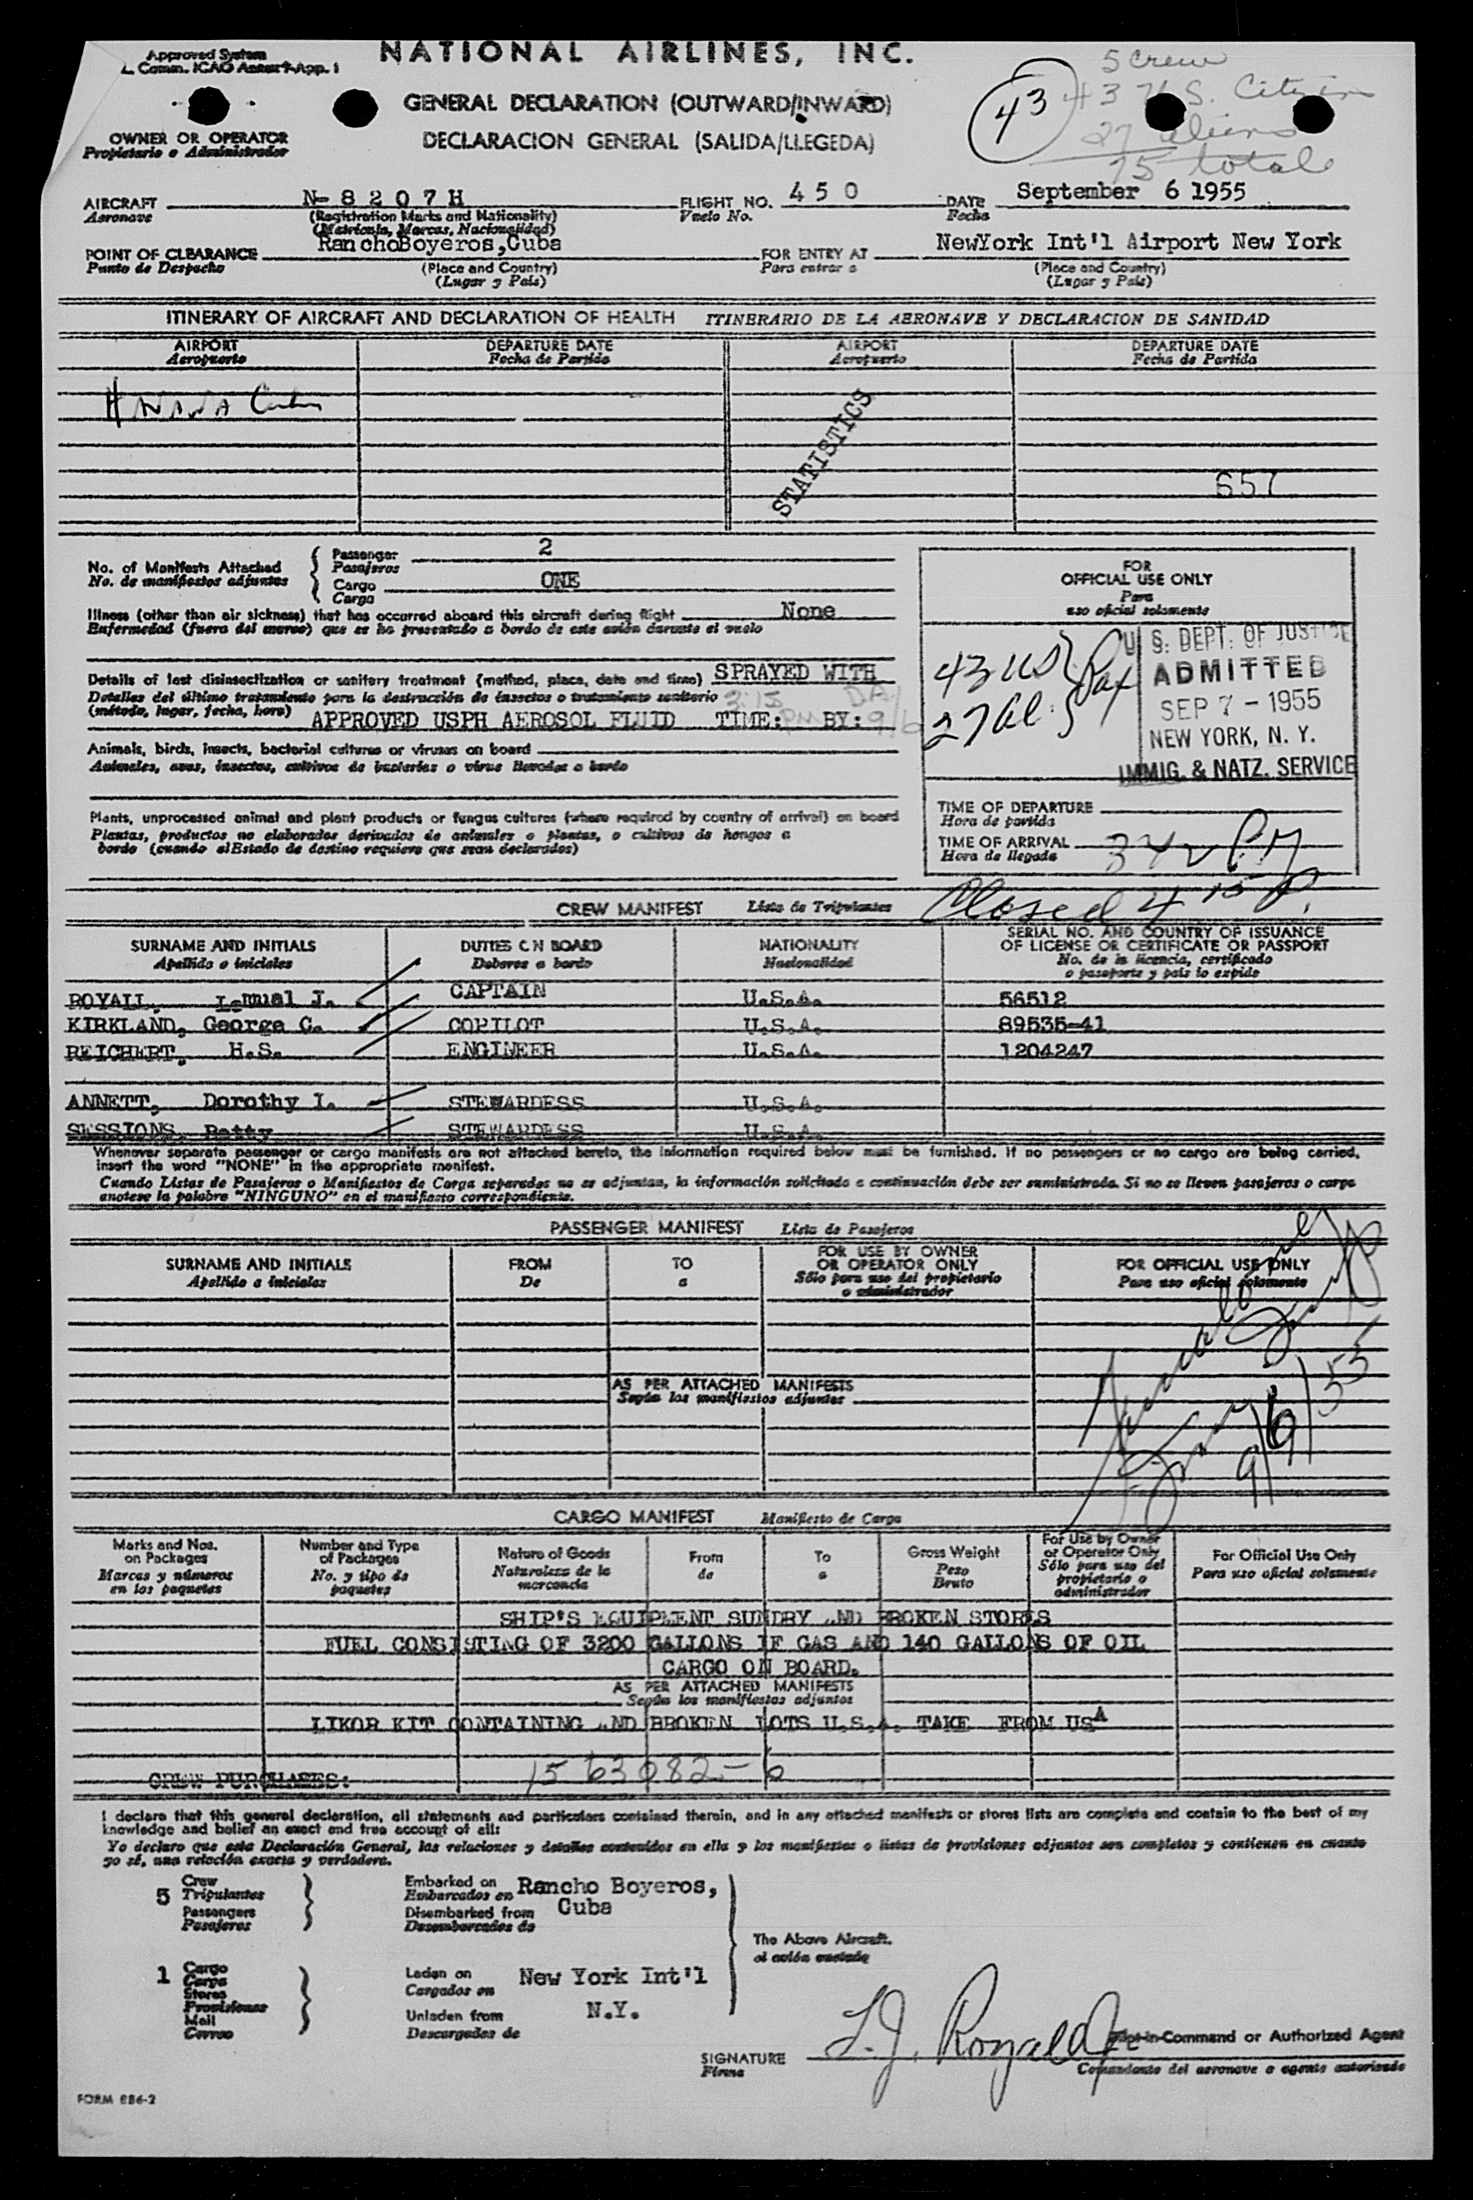 NATIONAL AIRLINES, INC.
Approved System
L. Comm. ICAO Annex 9-App. 1
5 Crew
43 U.S. Citizens
43
27 aliens
75 total
GENERAL DECLARATION (OUTWARD/INWARD)
DECLARACION GENERAL (SALIDA/LLEGEDA)
OWNER OR OPERATOR
Propietario o Administrador
AIRCRAFT N-8207H FLIGHT NO. 450 DATE September 6 1955
Aeronave (Registration Marks and Nationality) Vuelo No. Fecha
(Matricula, Marcas, Nacionalidad)
POINT OF CLEARANCE RanchoBoyeros,Cuba FOR ENTRY AT NewYork Int'l Airport New York
Punto de Despacho (Place and Country) Para entrar a (Place and Country)
(Lugar y Pais) (Lugar y Pais)
ITINERARY OF AIRCRAFT AND DECLARATION OF HEALTH ITINERARIO DE LA AERONAVE Y DECLARACION DE SANIDAD
AIRPORT DEPARTURE DATE AIRPORT DEPARTURE DATE
Aeropuerto Fecha de Partida Aeropuerto Fecha de Partida
STATISTICS
657
No. of Manifests Attached Passenger 2
No. de manifiestos adjuntos Pasajeros
Cargo ONE
Carga
FOR
OFFICIAL USE ONLY
Para
uso oficial solamente
Illness (other than air sickness) that has occurred aboard this aircraft during flight None
Enfermedad (fuera del mareo) que se ha presentado a bordo de este avión durante el vuelo
43 US
27 Al. Pax
U. S. DEPT. OF JUSTICE
ADMITTED
SEP 7 - 1955
NEW YORK, N. Y.
IMMIG. & NATZ. SERVICE
Details of last disinsectization or sanitary treatment (method, place, date and time) SPRAYED WITH
Detalles del último tratamiento para la destrucción de insectos o tratamiento sanitario
(método, lugar, fecha, hora) APPROVED USPH AEROSOL FLUID TIME: 3:15 pm BY: DA 9/6
Animals, birds, insects, bacterial cultures or viruses on board
Animales, aves, insectos, cultivos de bacterias o virus llevados a bordo
Plants, unprocessed animal and plant products or fungus cultures (where required by country of arrival) on board
Plantas, productos no elaborados derivados de animales o plantas, o cultivos de hongos a
bordo (cuando el Estado de destino requiera que sean declarados)
TIME OF DEPARTURE
Hora de partida
TIME OF ARRIVAL 342 PM
Hora de llegada
Closed 4 15 P.
CREW MANIFEST Lista de Tripulantes
SURNAME AND INITIALS DUTIES ON BOARD NATIONALITY SERIAL NO. AND COUNTRY OF ISSUANCE
Apellido o iniciales Deberes a bordo Nacionalidad OF LICENSE OR CERTIFICATE OR PASSPORT
No. de la licencia, certificado
o pasaporte y pais lo expide
ROYALL, Lemual J. CAPTAIN U.S.A. 56512
KIRKLAND, George C. COPILOT U.S.A. 89535-41
REICHERT, H.S. ENGINEER U.S.A. 1204247
ANNETT, Dorothy I. STEWARDESS U.S.A.
SESSIONS, Betty STEWARDESS U.S.A.
Whenever separate passenger or cargo manifests are not attached hereto, the information required below must be furnished. If no passengers or no cargo are being carried,
insert the word "NONE" in the appropriate manifest.
Cuando Listas de Pasajeros o Manifiestos de Carga separados no se adjuntan, la información solicitada a continuación debe ser suministrada. Si no se lleven pasajeros o carga
anotese la palabra "NINGUNO" en el manifiesto correspondiente.
PASSENGER MANIFEST Lista de Pasajeros
SURNAME AND INITIALS FROM TO FOR USE BY OWNER FOR OFFICIAL USE ONLY
Apellido a iniciales De a OR OPERATOR ONLY Para uso oficial solamente
Sólo para uso del propietario
o administrador
AS PER ATTACHED MANIFESTS
Según los manifiestos adjuntos
9/6/55
CARGO MANIFEST Manifiesto de Carga
Marks and Nos. on Packages Marcas y números en los paquetes
Number and Type of Packages No. y tipo de paquetes
Nature of Goods Naturaleza de la mercancia
From de
To a
Gross Weight Peso Bruto
For Use by Owner or Operator Only Sólo para uso del propietario o administrador
For Official Use Only Para uso oficial solamente
SHIP'S EQUIPMENT SUNDRY AND BROKEN STORES
FUEL CONSISTING OF 3200 GALLONS OF GAS AND 140 GALLONS OF OIL
CARGO ON BOARD.
AS PER ATTACHED MANIFESTS
Según los manifiestos adjuntos
LIKOR KIT CONTAINING AND BROKEN LOTS U.S.A. TAKE FROM USA
CREW PURCHASES: 1563082-6
I declare that this general declaration, all statements and particulars contained therein, and in any attached manifests or stores lists are complete and contain to the best of my
knowledge and belief an exact and true account of all:
Yo declaro que esta Declaración General, las relaciones y detalles contenidos en ella y los manifiestos o listas de provisiones adjuntos son completos y contienen en cuanto
yo sé, una relación exacta y verdadera.
5 Crew Tripulantes Passengers Pasajeros
Embarked on Rancho Boyeros,
Embarcados en Cuba
Disembarked from
Desembarcados de
The Above Aircraft.
el avión
1 Cargo Carga Stores Provisiones Mail Correo
Laden on New York Int'l
Cargados en
Unladen from N.Y.
Descargados de
SIGNATURE L.J. Royall Pilot-in-Command or Authorized Agent
Firma Comandante del aeronave o agente autorizado
FORM 886-2